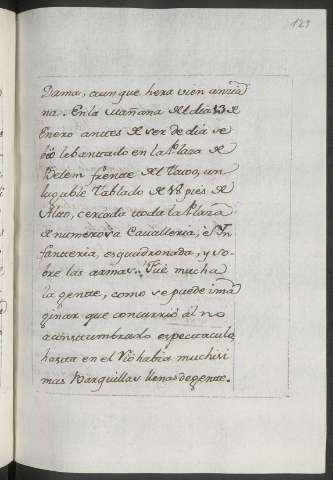 129
Dama, aunque hera vien ancia
na. En la mañana del dia 13 de
Enero antes de ser de dia se
bio lebantado en la Plaza de
Belem frente del Taxo, un
lugubre Tablado de 18 pies de
Alto, cercado toda la Plaza
de numerosa Cavalleria, è In
fanteria, esquadronada, y so-
bre las armas. Fué mucha
la gente, como se puede ima
ginar que concurrió ál no
acostumbrado espectaculo,
hasta en el Rio habia muchisi
mas Barquillas llenas de gente.